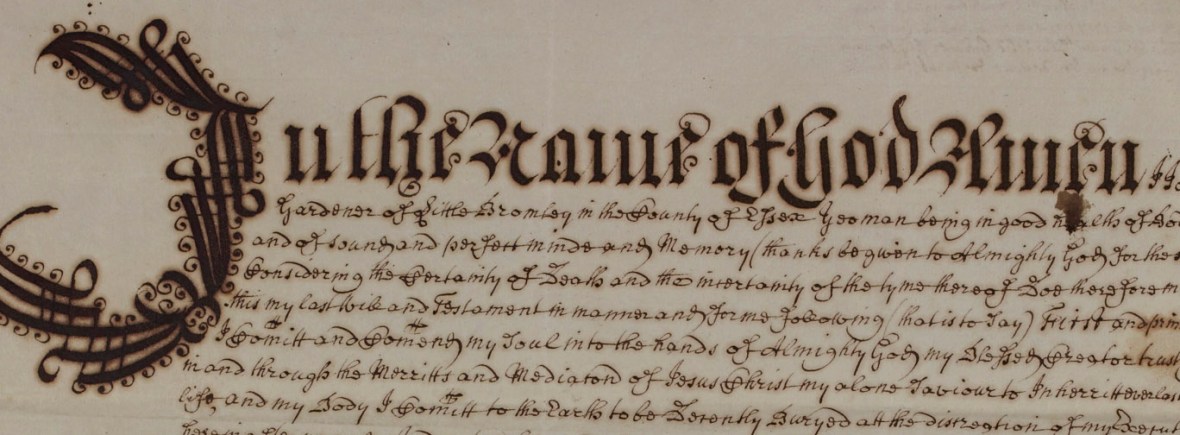 In the Name of God Amen I
Gardener of Little Bromley in the County of Essex Yeoman being in good health of Bod
and of sound and perfett minde and Memory (thanks be given to Almighty God for the
Considering the Certainty of Death and the incertainty of the tyme thereof Doe therefore m
this my last Will and Testament in manner and forme following (that is to Say) First and prin
I Comitt and Comend my Soul into the hands of Almighty God my Blessed Creator trust
in and through the Merritts and Mediaton of Jesus Christ my alone Saviour to Inherritt everlast
life, and my Body I Comitt to the Earth to be Decently Buryed at the distreqtion of my Execut